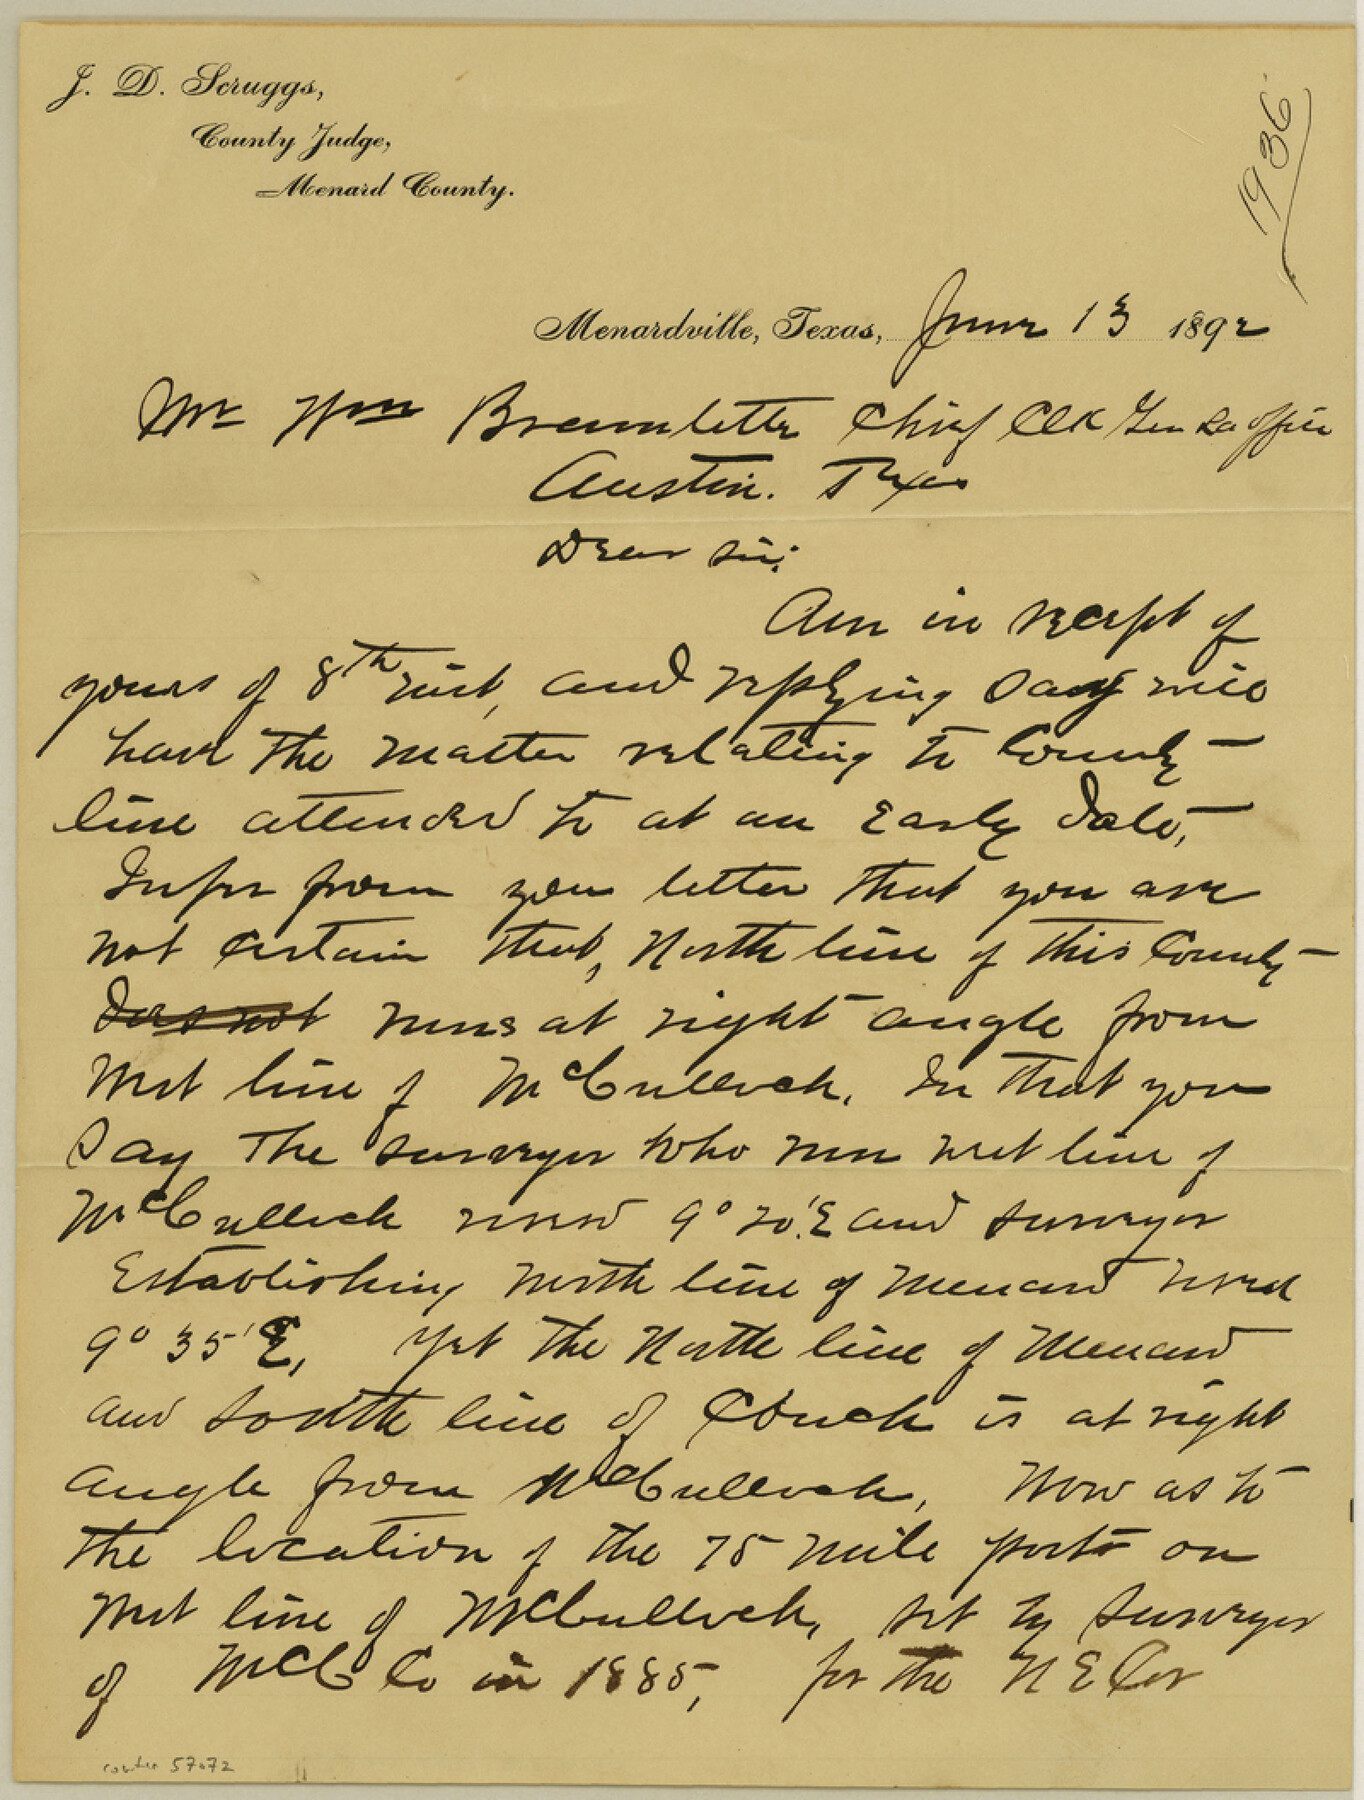 J. D. Scruggs,
County Judge,
Menard County.
1936
Menardville, Texas, June 13 1892
Mr Wm Bramlette Chief Clk Gen La office
Austin. Texas
Dear Sir:
Am in receipt of
yours of 8th inst, and replying Say will
have the matter relating to County
line attended to at an Early date,
Infer from you letter that you are
not certain that, North line of this County
Does not runs at right angle from
West line of McCulloch. In that you
Say The surveyor who run west line of
McCulloch used 9° 20' E and surveyor
Establishing north line of Menard used
9° 35' E, Yet the North line of Menard
and south line of Concho is at right
angle from McCulloch, Now as to
the location of the 75 mile post on
West line of McCulloch, set by surveyor
of McC Co in 1885, for the N E Cor
counter 57072